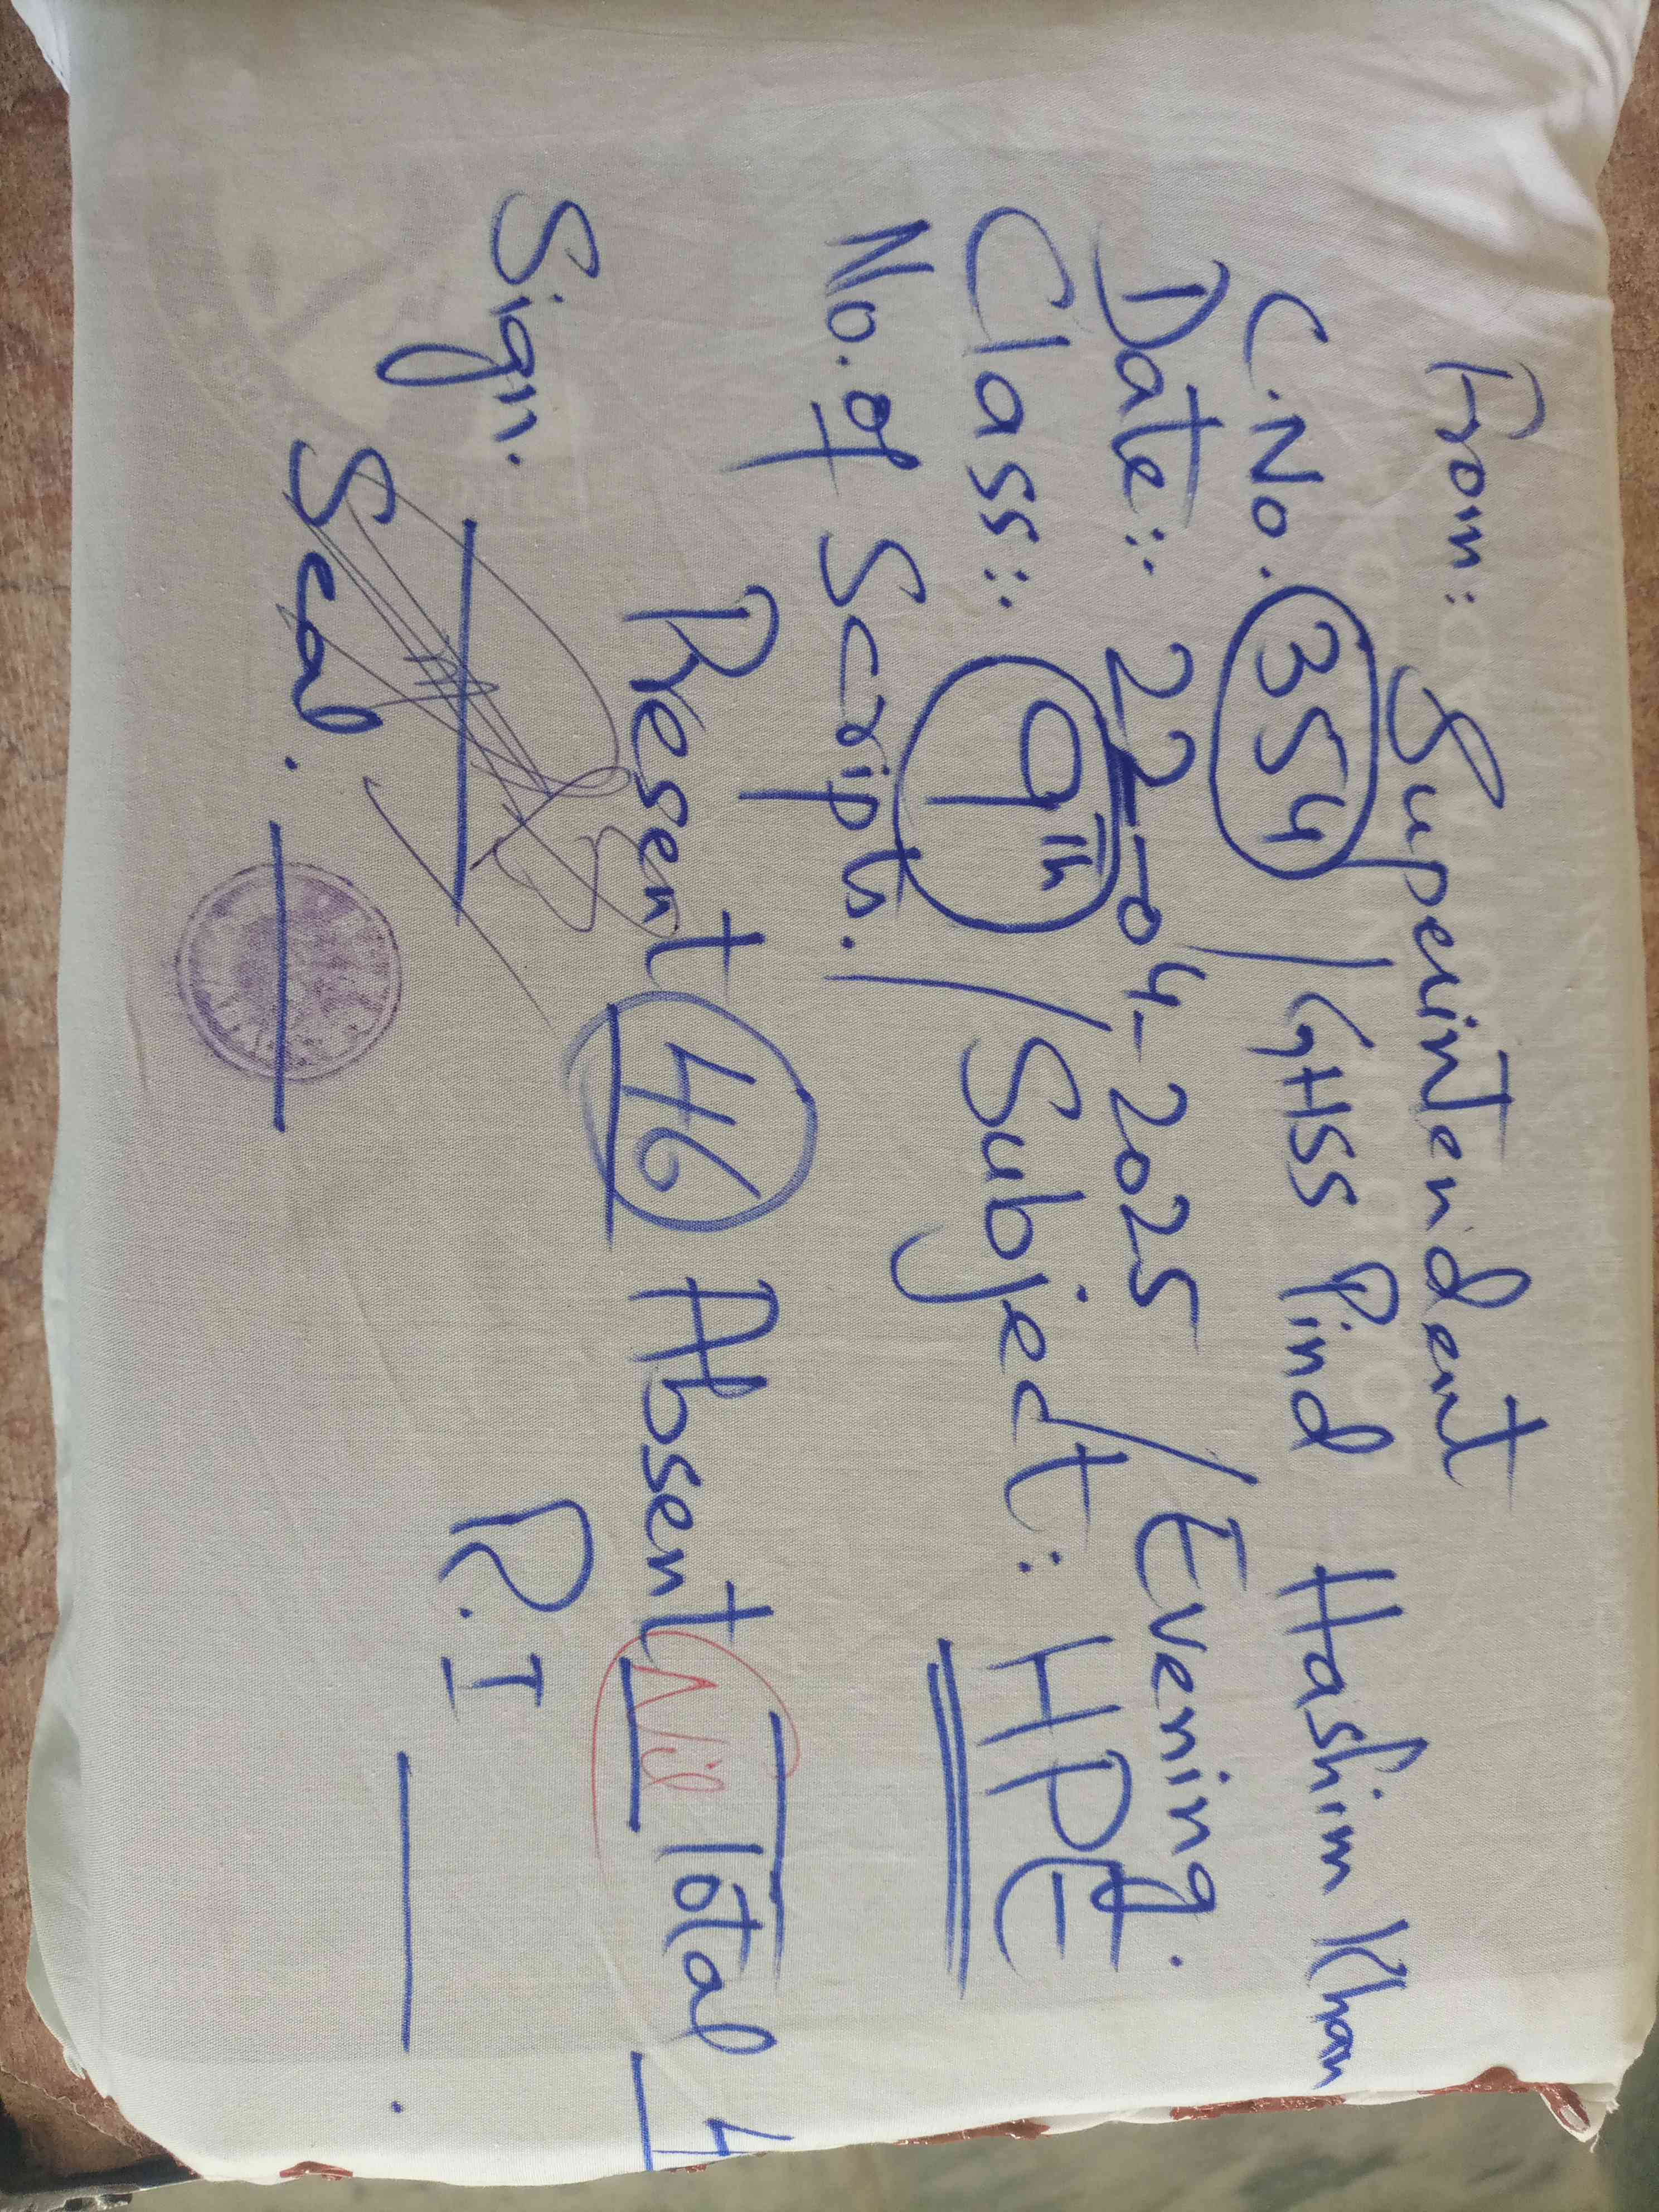 From: Superintendent
C.No. 354 / GHSS Pind Hashim Khan
Date:: 22-04-2025 / Evening.
Class:: 9th / Subject: HPE
No. of Scripts.
Present 46 Absent Nil Total 4
Sign. R.I
Seal.